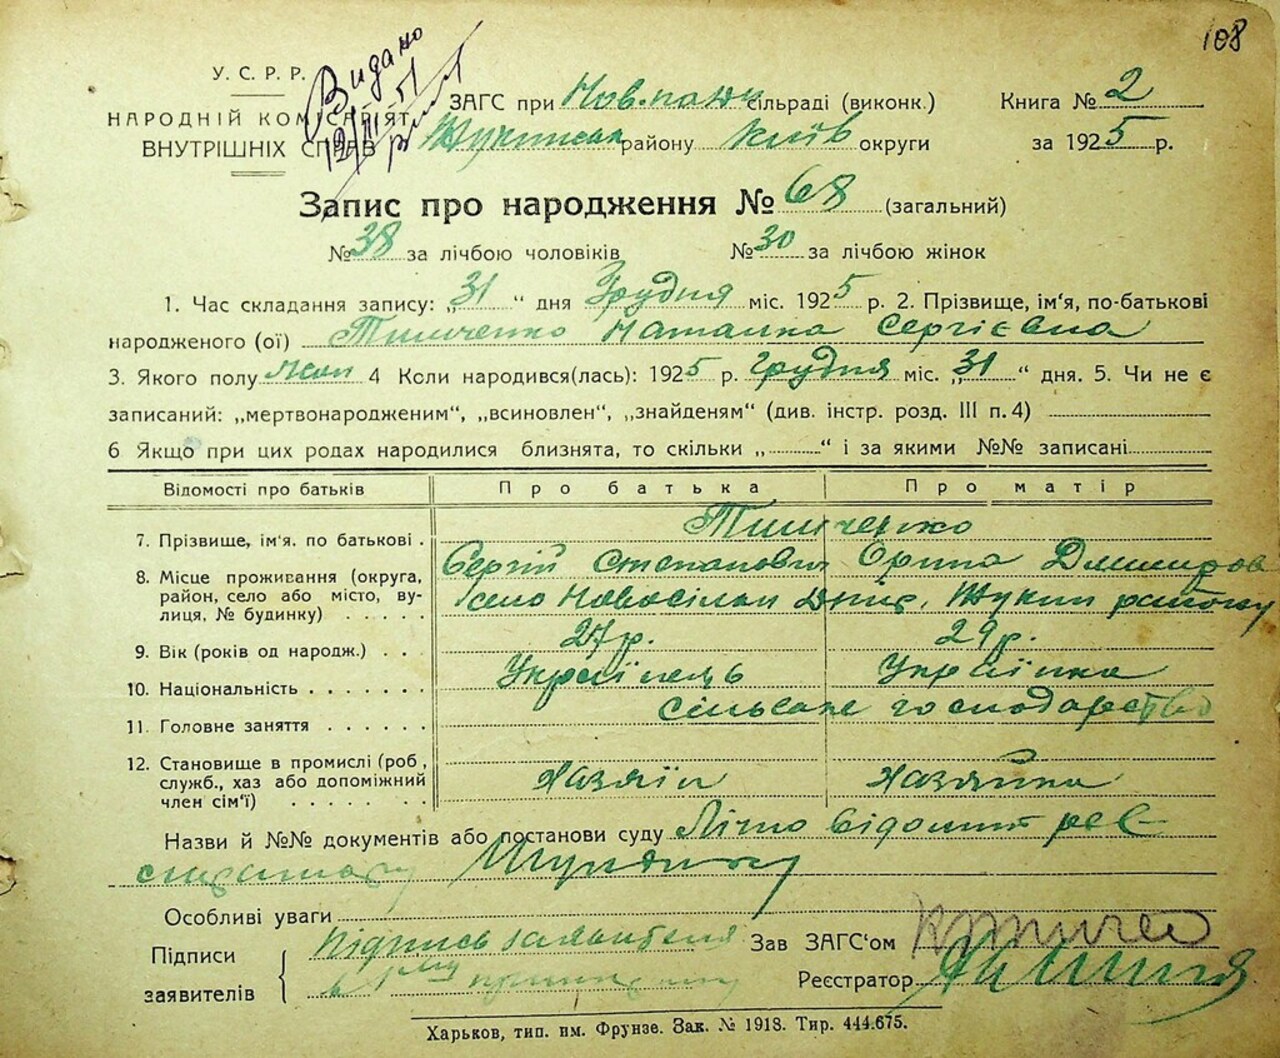 108
Видано
У. С. Р. Р.
НАРОДНІЙ КОМІСАРІЯТ
ВНУТРІШНІХ СПРАВ
ЗАГС при сільраді (виконк.)
району Київ округи
Книга № 2
за 1925 р.
Запис про народження № 68 (загальний)
№ 38 за лічбою чоловіків № 30 за лічбою жінок
1. Час складання запису: „31“ дня Грудня міс. 1925 р. 2. Прізвище, ім'я, по-батькові
народженого (ої) Тимченко Наталка Сергієвна
3. Якого полу Жон 4 Коли народився(лась): 1925 р. Грудня міс. „31“ дня. 5. Чи не є
записаний: „мертвонародженим“, „всиновлен“, „знайденям“ (див. інстр. розд. III п. 4)
6 Якщо при цих родах народилися близнята, то скільки „ “ і за якими №№ записані
Відомості про батьків Про батька Про матір
7. Прізвище, ім'я. по батькові . Тимченко
Сергій Степанович Орина Дмитров
8. Місце проживання (округа,
район, село або місто, ву-
лиця, № будинку) . . . . . село Новосілки Днпр. Жукин району
9. Вік (років од народж.) . . . 27 р. 29 р.
10. Національність . . . . . . . Українець Українка
11. Головне заняття . . . . . . сільське господарство
12. Становище в промислі (роб,
служб., хаз або допоміжний
член сім'ї) . . . . . . . Хазяїн Хазяйка
Назви й №№ документів або постанови суду Лічно відомий реє
Особливі уваги
Підписи
заявителів
Підпись заявителя
в 1му
Зав ЗАГС'ом
Реєстратор
Харьков, тип. им. Фрунзе. Зак. № 1918. Тир. 444.675.